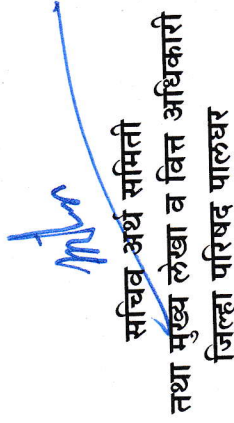 सचिव अर्थ समिती
तथा मुख्य लेखा व वित्त अधिकारी
जिल्हा परिषद पालघर